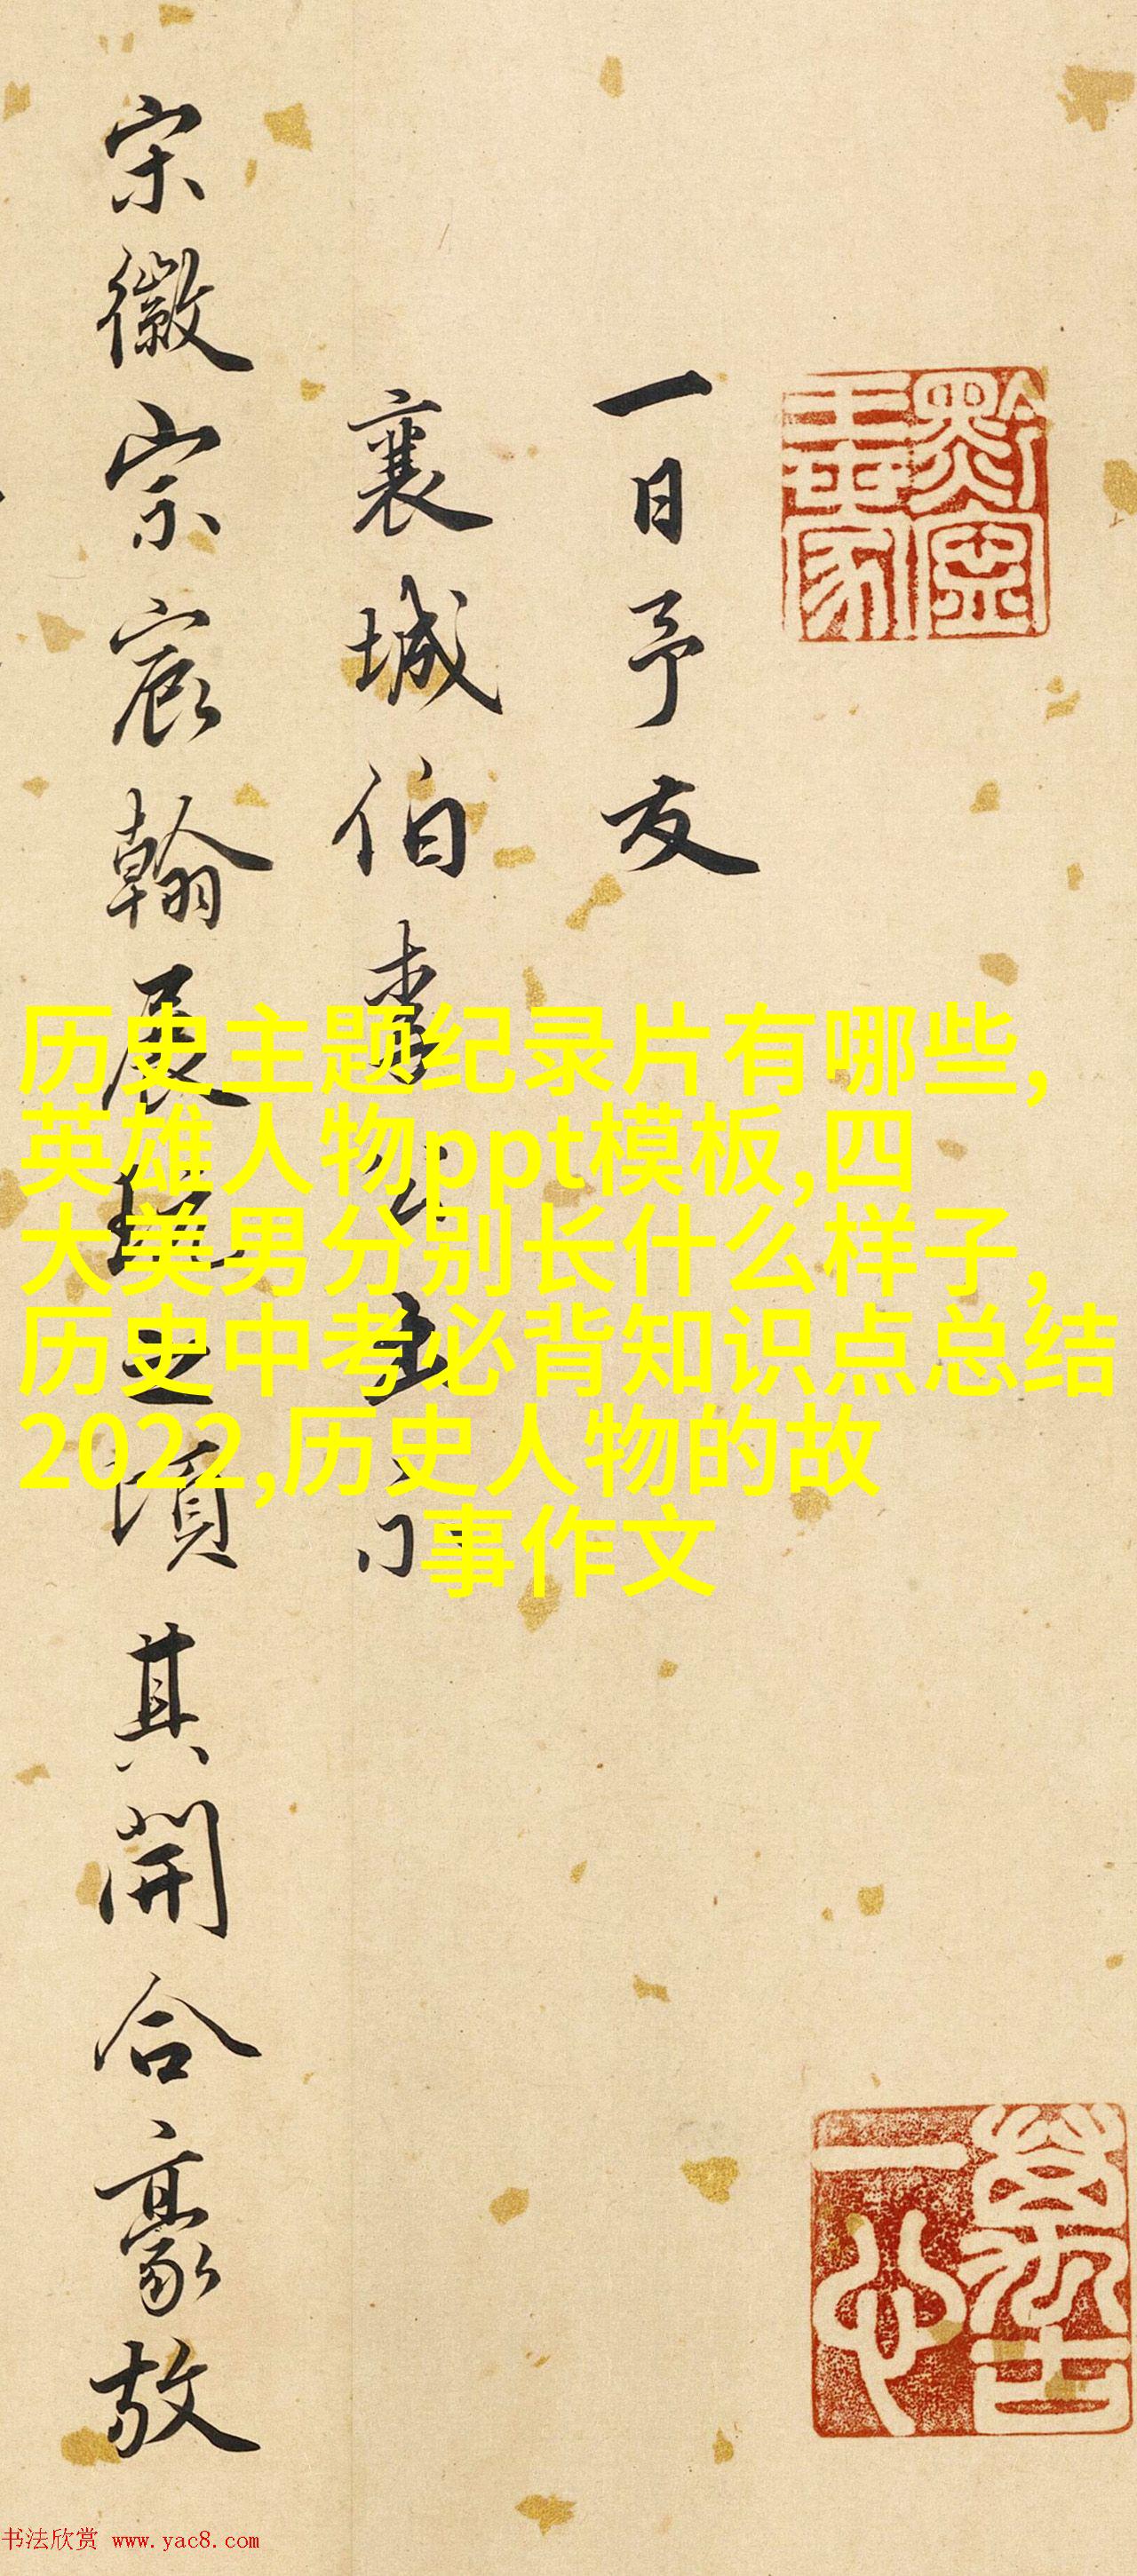 一日予友
襄城伯李公
宋徽宗宸翰展玩之頃其開合豪放
历史主题纪录片有哪些,
英雄人物ppt模板,四
大美男分别长什么样子,
历史中考必背知识点总结
2022,历史人物的故
事作文
书法欣赏 www.yac8.com